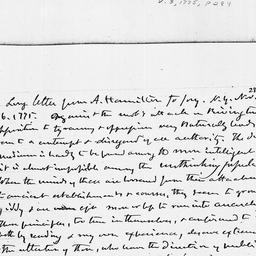 V. 3, 1775, p 284
Long letter from A. Hamilton to Jay. N.Y. Nov.
6. 1775. Against the mob's attack on Rivington
opposition to tyranny & oppression very naturally leads
to a contempt & disregard of all authority. The due
medium is hardly to be found among the more intelligent
it is almost impossible among the unthinking populace
When the minds of these are loosened from their attachment
to ancient establishments & courses, they seem to grow
giddy & are apt more or less to run into anarchy
These principles, too true in themselves, & confirmed to
both by reading & my own experience, deserve extremely
the attention of those, who have the direction of public